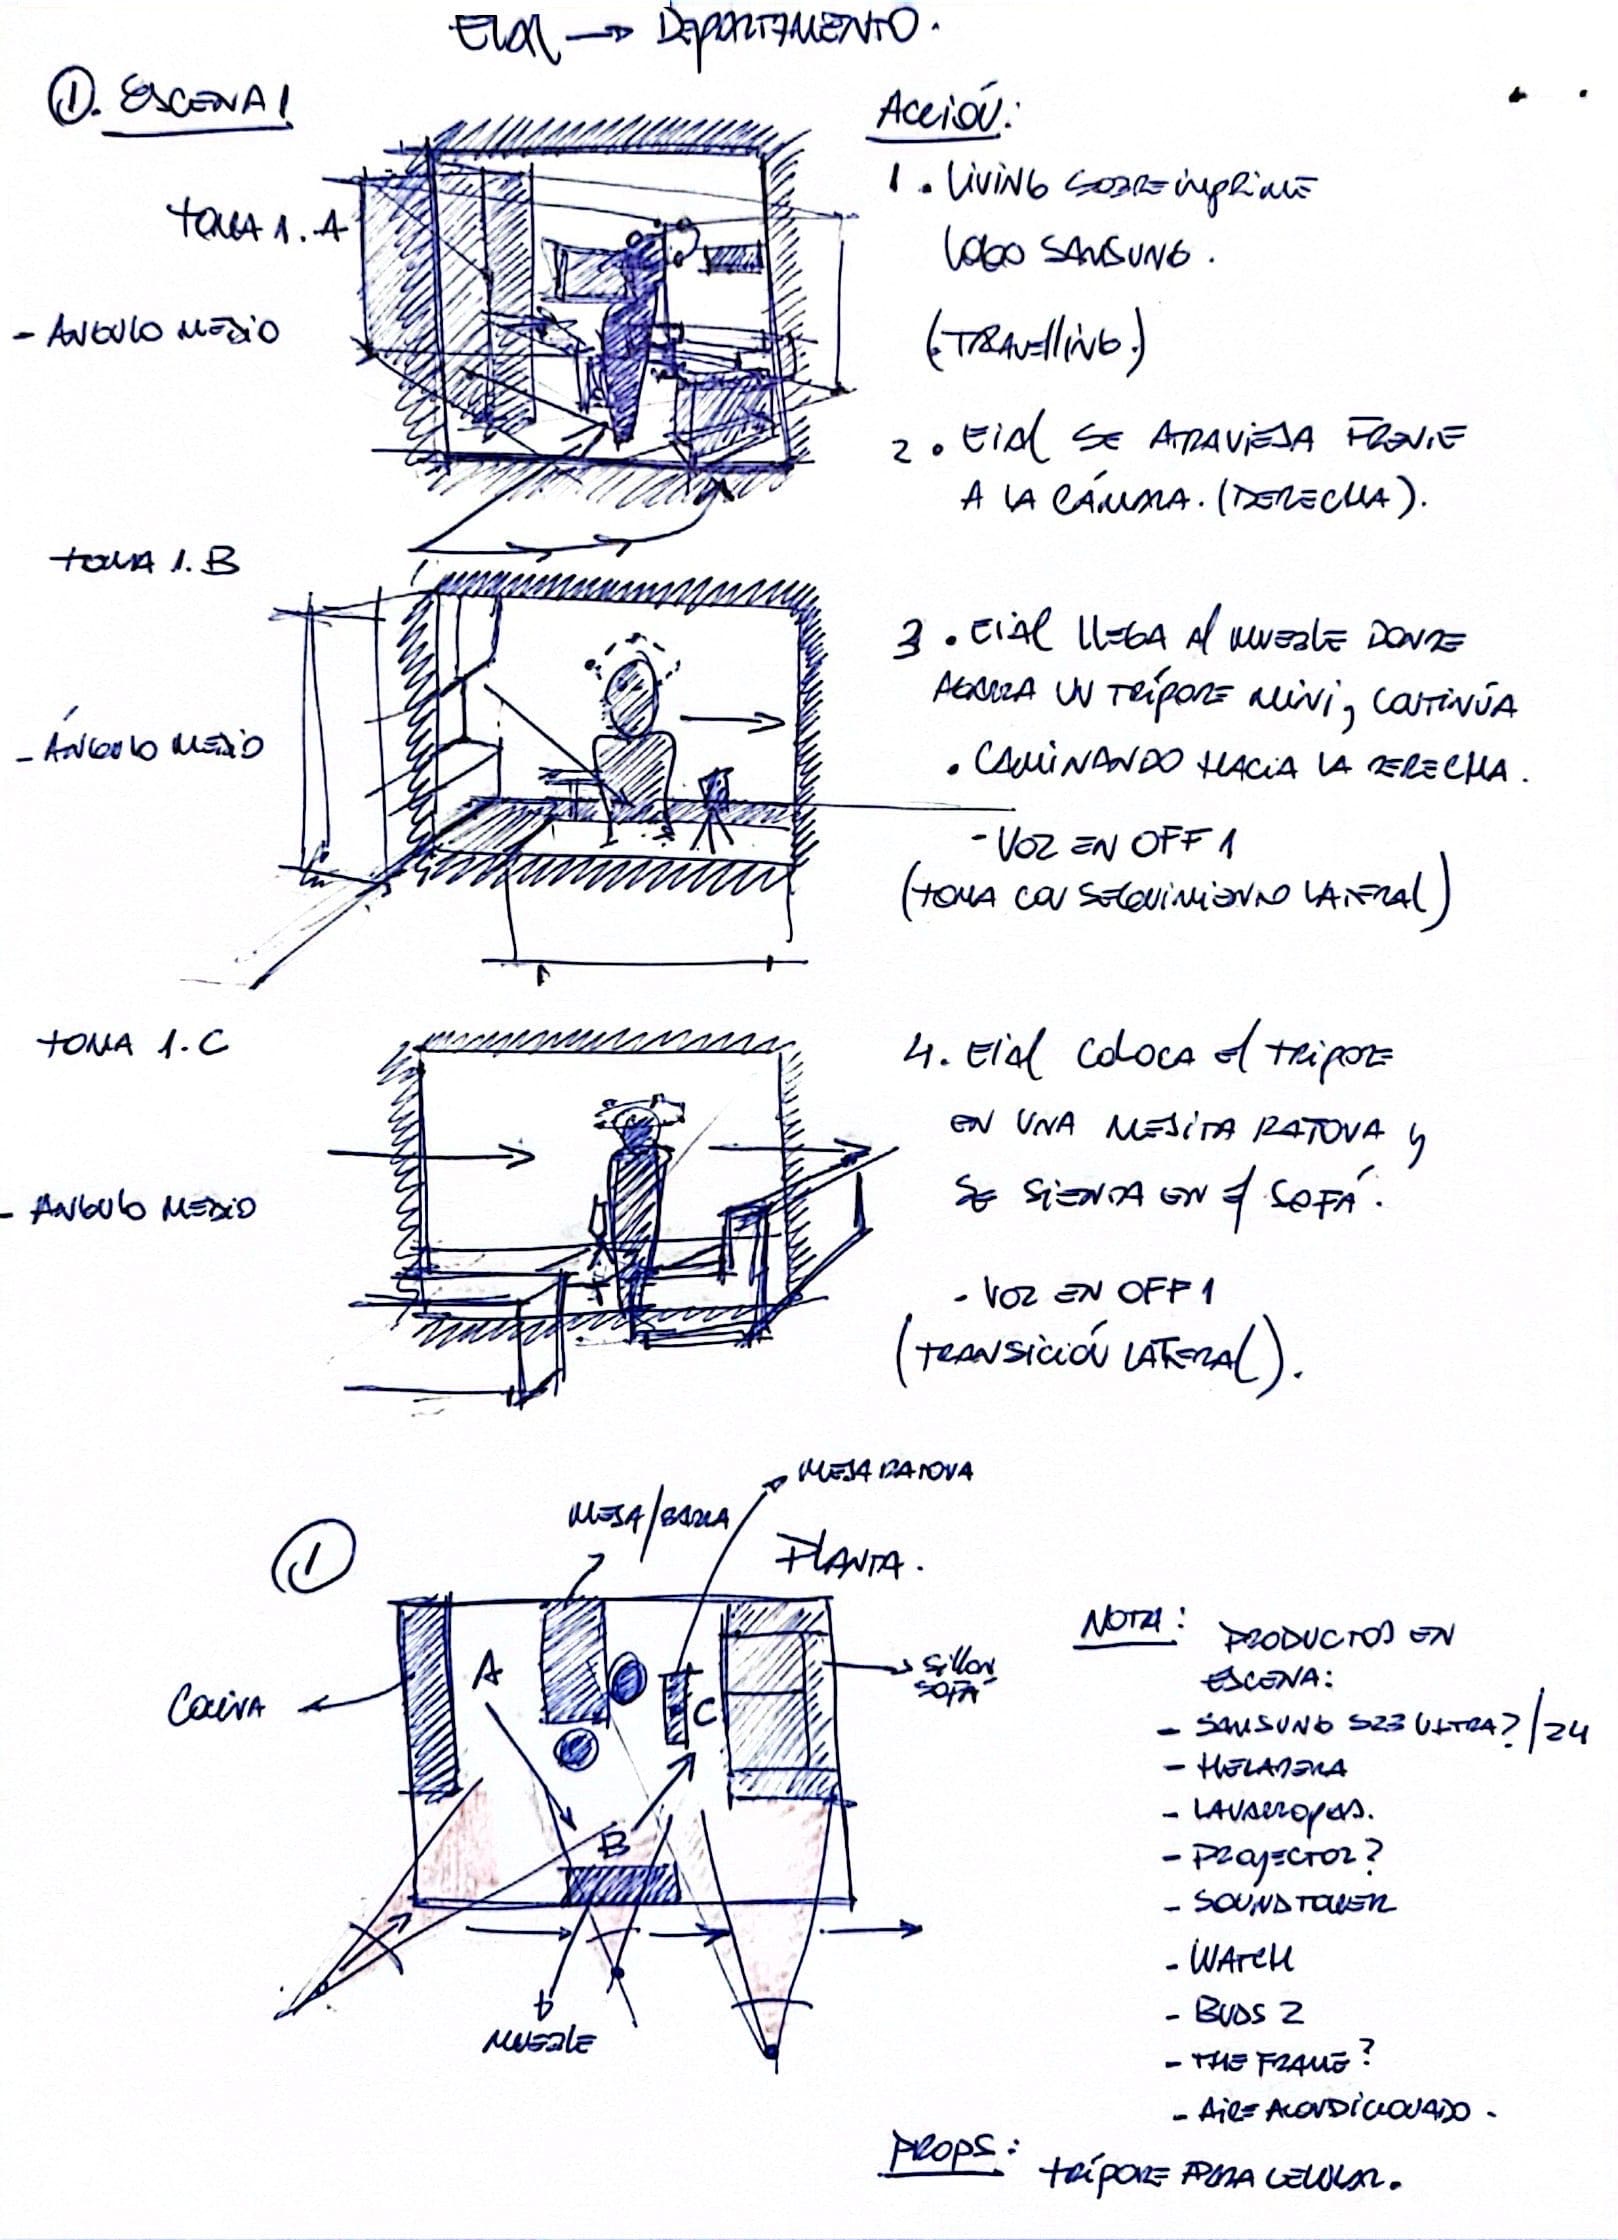 Eial → DEPARTAMENTO.
①. ESCENA 1
TOMA 1.A
- ANGULO MEDIO
ACCIÓN:
1. LIVING SOBREIMPRIME
LOGO SAMSUNG.
(TRAVELLING.)
2. EIAL SE ATRAVIESA FRENTE
A LA CÁMARA. (DERECHA).
TOMA 1.B
- ÁNGULO MEDIO
3. EIAL LLEGA AL MUEBLE DONDE
AGARRA UN TRÍPODE MINI, CONTINÚA
. CAMINANDO HACIA LA DERECHA.
- VOZ EN OFF 1
(TOMA CON SEGUIMIENTO LATERAL)
TOMA 1.C
- ANGULO MEDIO
4. EIAL COLOCA EL TRIPODE
EN UNA MESITA RATONA Y
SE SIENTA EN EL SOFÁ.
- VOZ EN OFF 1
(TRANSICIÓN LATERAL).
①
MESA/BARRA
MESA RATONA
PLANTA.
COCINA
A
B
C
SILLON
SOFÁ
MUEBLE
NOTA: PRODUCTOS EN
ESCENA:
- SAMSUNG S23 ULTRA?/24
- HELADERA
- LAVARROPAS.
- PROYECTOR?
- SOUND TOWER
- WATCH
- BUDS 2
- THE FRAME?
- AIRE ACONDICIONADO.
PROPS: TRÍPODE PARA CELULAR.